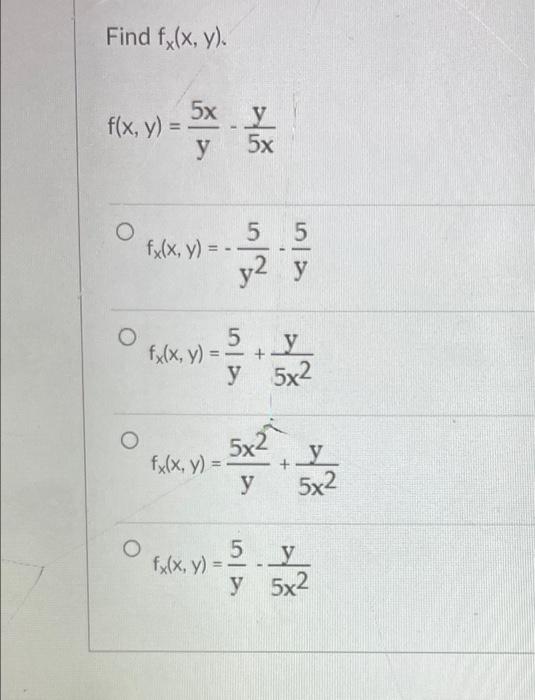 Find fₓ(x, y).
f(x, y) = 5x/y - y/5x
fₓ(x, y) = - 5/y² - 5/y
fₓ(x, y) = 5/y + y/5x²
fₓ(x, y) = 5x²/y + y/5x²
fₓ(x, y) = 5/y - y/5x²